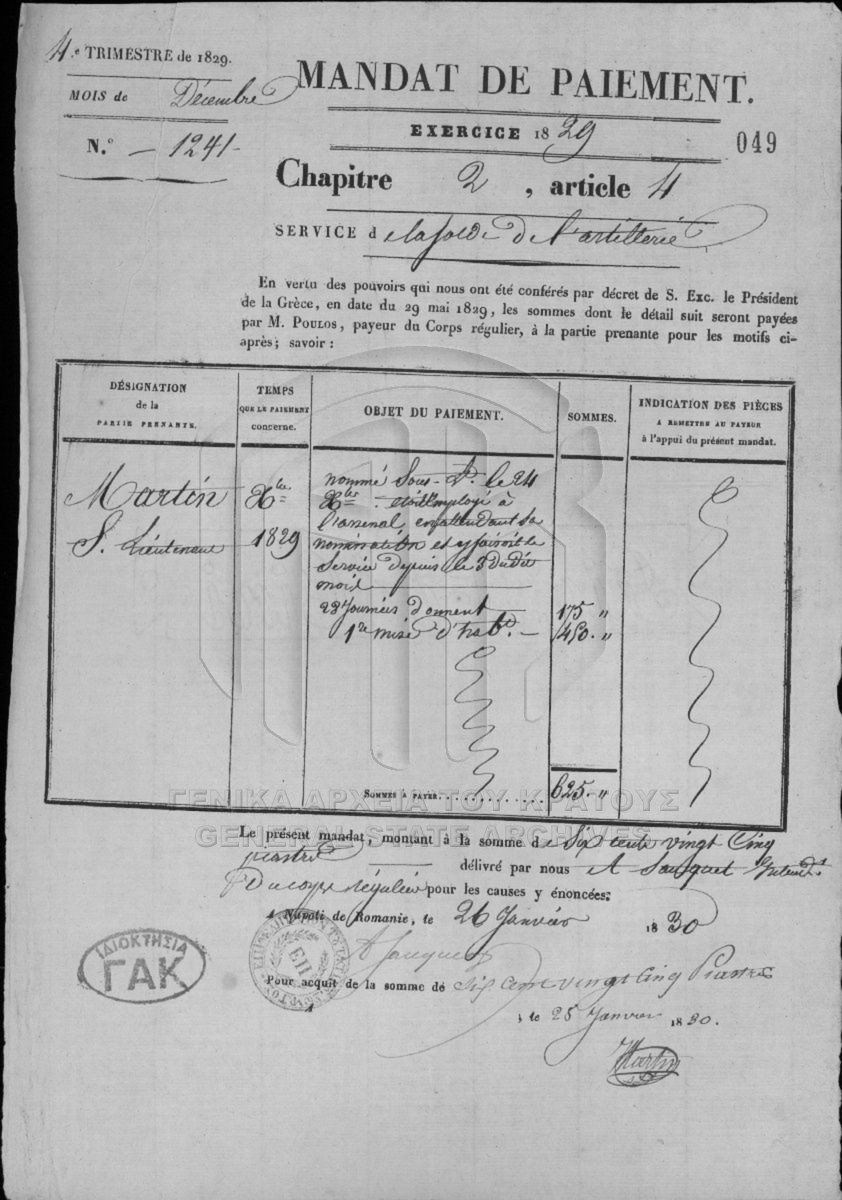 4.e TRIMESTRE de 1829.
MOIS de Décembre
N.° 1241
MANDAT DE PAIEMENT.
EXERCICE 1829
049
Chapitre 2, article 4
SERVICE de la solde de l'artillerie
En vertu des pouvoirs qui nous ont été conférés par décret de S. Exc. le Président
de la Grèce, en date du 29 mai 1829, les sommes dont le détail suit seront payées
par M. POULOS, payeur du Corps régulier, à la partie prenante pour les motifs ci-
après; savoir :
DÉSIGNATION
de la
PARTIE PRENANTE.
TEMPS
QUE LE PAIEMENT
concerne.
OBJET DU PAIEMENT.
SOMMES.
INDICATION DES PIÈCES
A REMETTRE AU PAYEUR
à l'appui du présent mandat.
Martin
S. Lieutenant
Xbre
1829
nommé Sous-Lt. le 24
Xbre étoit employé à
l'arsenal en attendant sa
nomination et y faisoit le
service depuis le 3 dudit
mois
23 Journées donnent 175 "
1re mise d'habt. 450. "
SOMMES A PAYER. 625. "
ΓΕΝΙΚΑ ΑΡΧΕΙΑ ΤΟΥ ΚΡΑΤΟΥΣ
GENERAL STATE ARCHIVES
Le présent mandat, montant à la somme de Six cents vingt Cinq
piastres délivré par nous A Sauquet Intendt
Du corps régulier pour les causes y énoncées:
A Napoli de Romanie, le 26 Janvier 1830
A Sauquet
ΙΔΙΟΚΤΗΣΙΑ
ΓΑΚ
Pour acquit de la somme de Six cent vingt Cinq Piastres
à le 25 Janvier 1830.
Martin